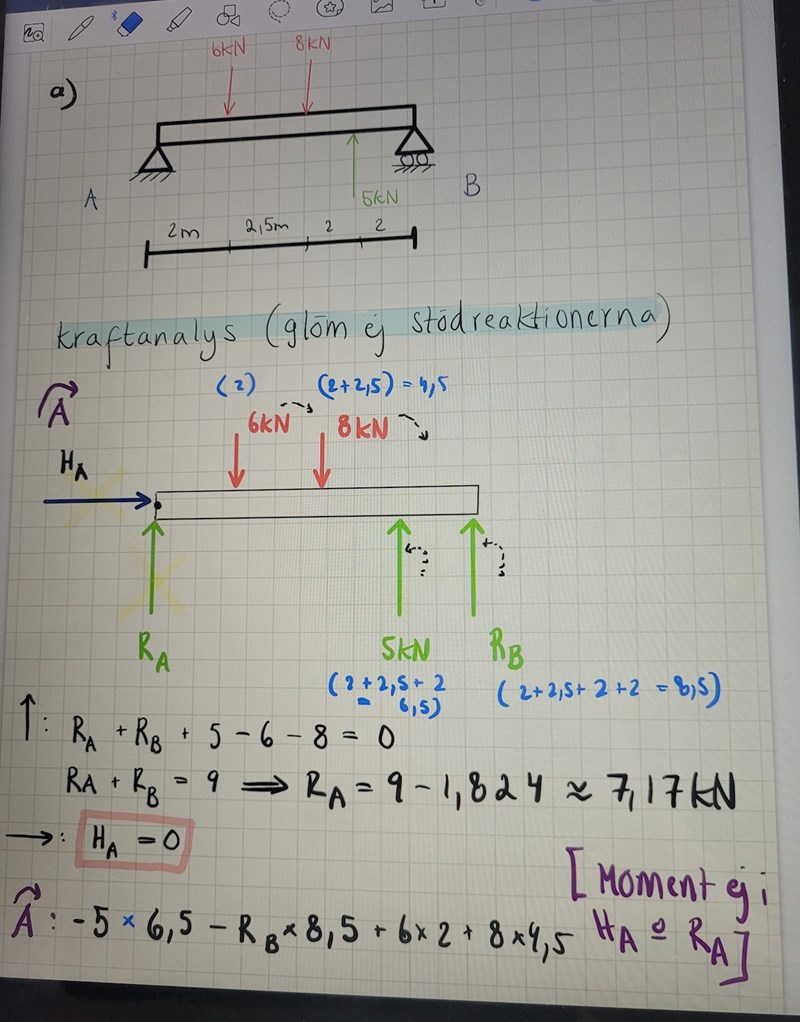 6kN 8kN
a)
A B
5kN
2m 2,5m 2 2
kraftanalys (glöm ej stödreaktionerna)
A (2) (2+2,5) = 4,5
6kN 8kN
H_A
R_A 5kN R_B
(2+2,5+2 = 6,5) (2+2,5+2+2 = 8,5)
↑: R_A + R_B + 5 - 6 - 8 = 0
R_A + R_B = 9 ⟹ R_A = 9 - 1,824 ≈ 7,17kN
→: H_A = 0
[Moment ej i
A: -5 × 6,5 - R_B × 8,5 + 6×2 + 8×4,5 H_A o R_A]